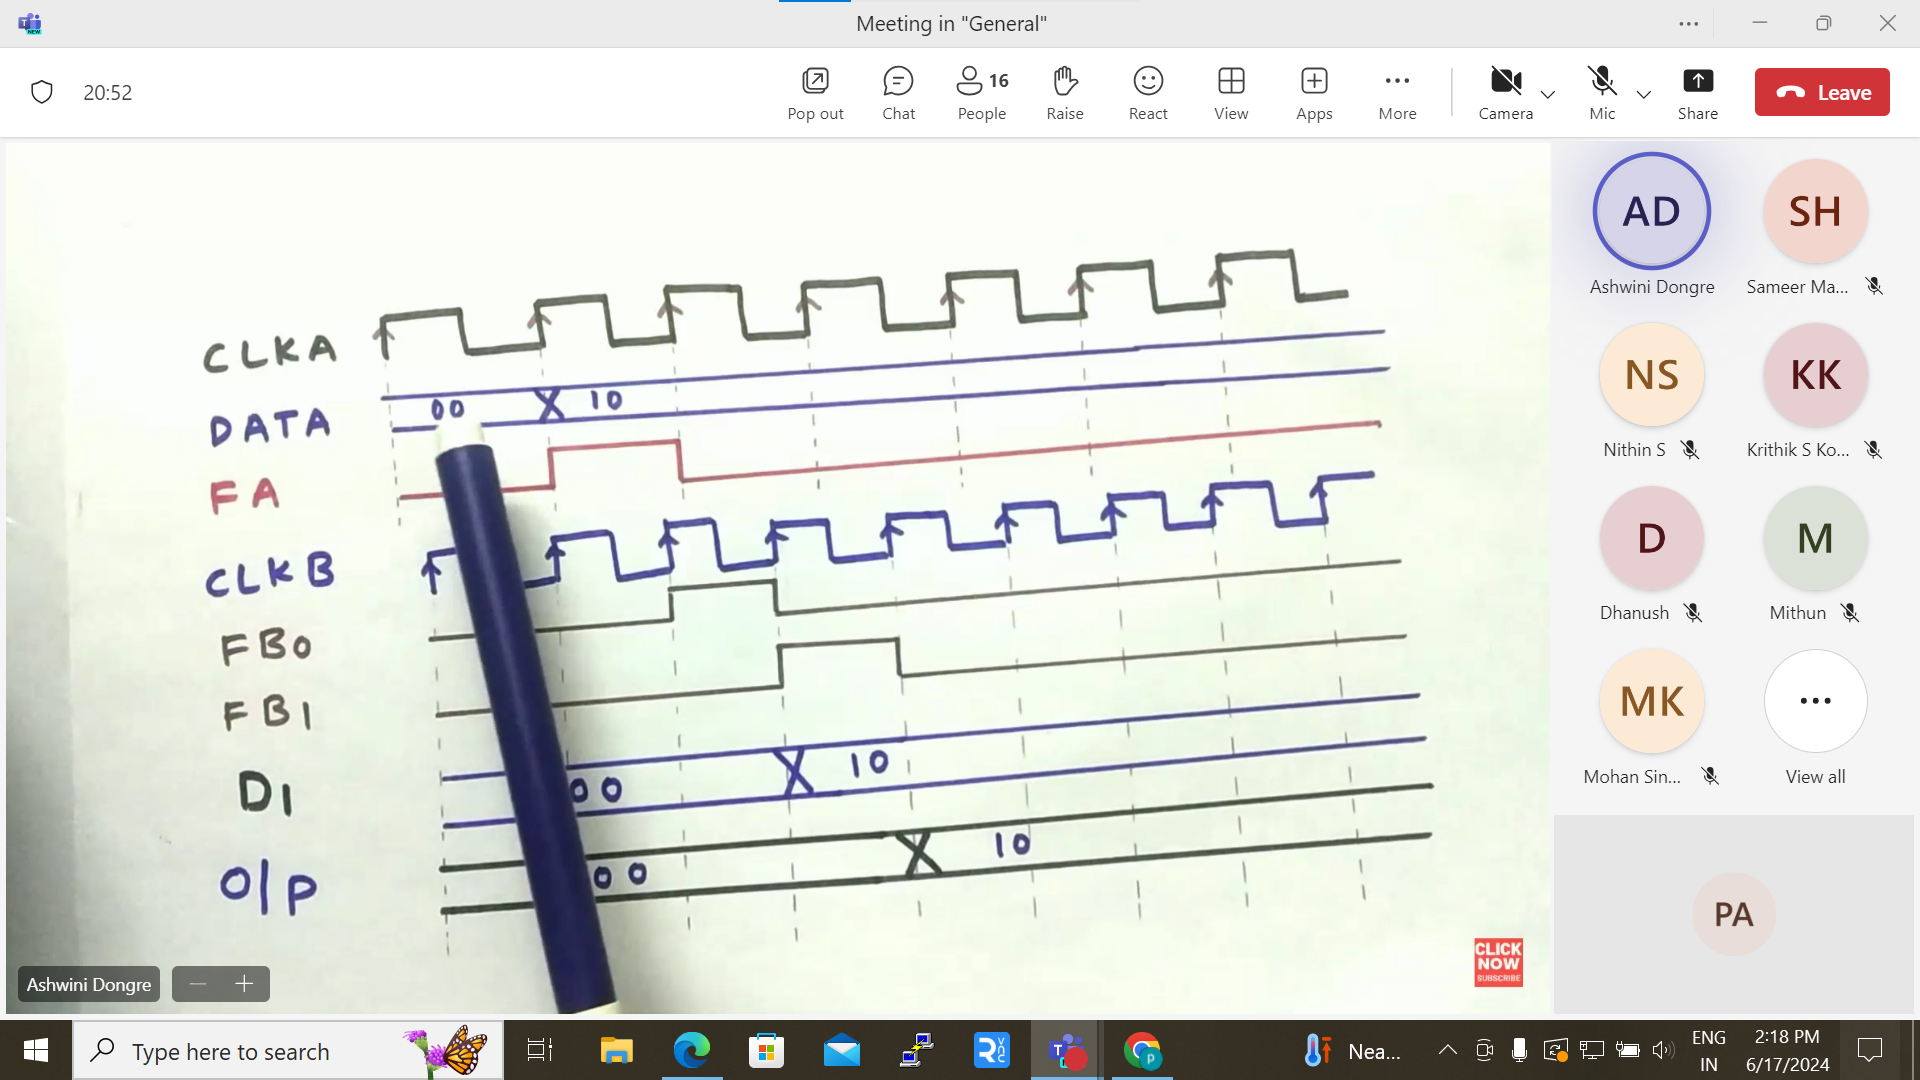 Meeting in "General"
NEW
20:52
Pop out
Chat
16
People
Raise
React
View
Apps
More
Camera
Mic
Share
Leave
CLKA
DATA
00 X 10
FA
CLKB
FB0
FB1
D1
00 X 10
O/P
00 X 10
CLICK
NOW
SUBSCRIBE
Ashwini Dongre
AD
SH
Ashwini Dongre
Sameer Ma...
NS
KK
Nithin S
Krithik S Ko...
D
M
Dhanush
Mithun
MK
Mohan Sin...
View all
PA
Type here to search
Nea...
ENG
IN
2:18 PM
6/17/2024